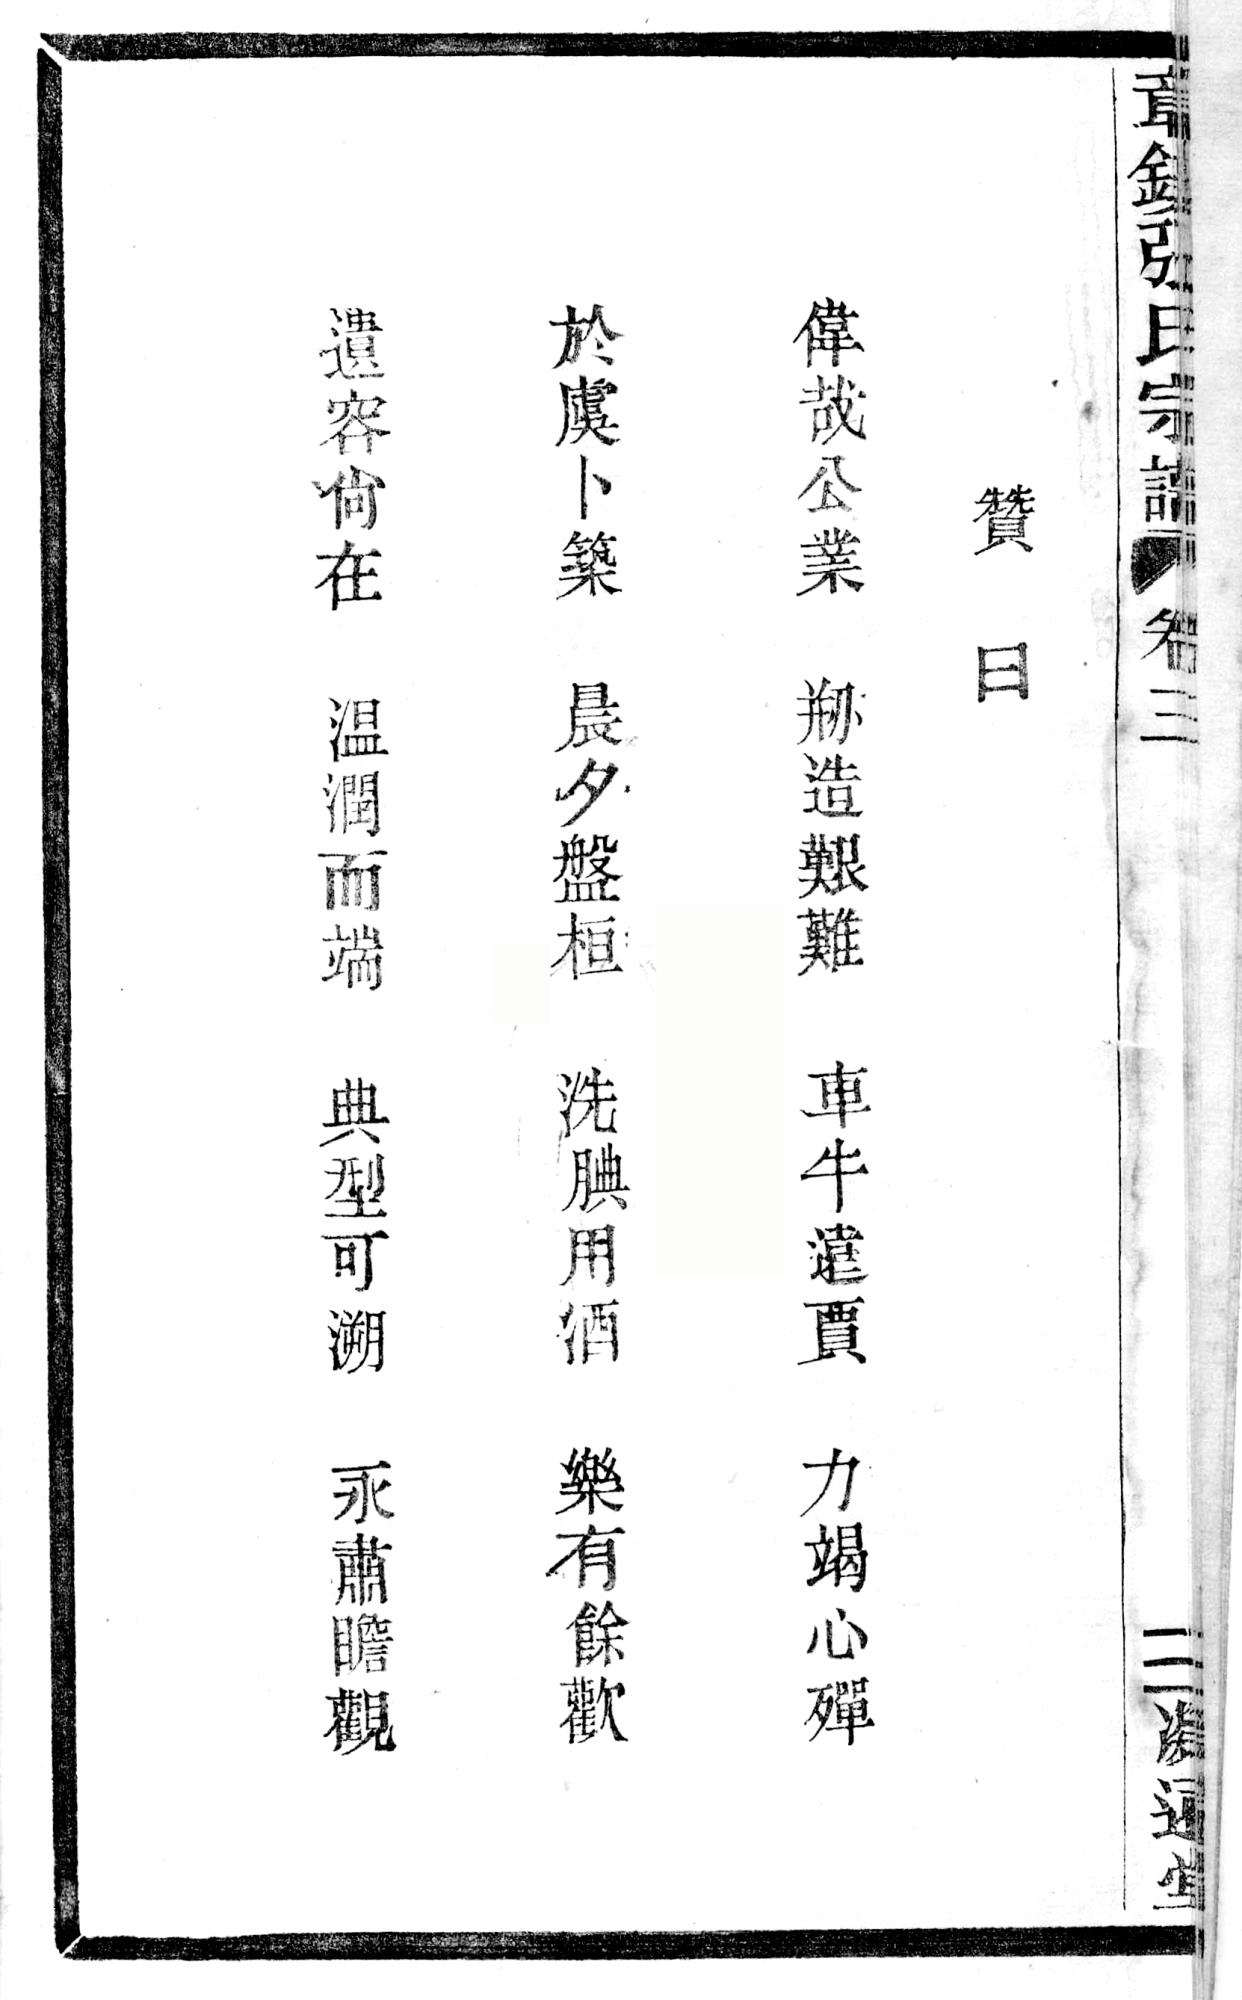 張氏宗譜 卷三 二
贊曰
偉哉公業 剙造艱難 車牛遠賈 力竭心殫
於虞卜築 晨夕盤桓 洗腆用酒 樂有餘歡
遺容尙在 温潤而端 典型可溯 永肅瞻觀